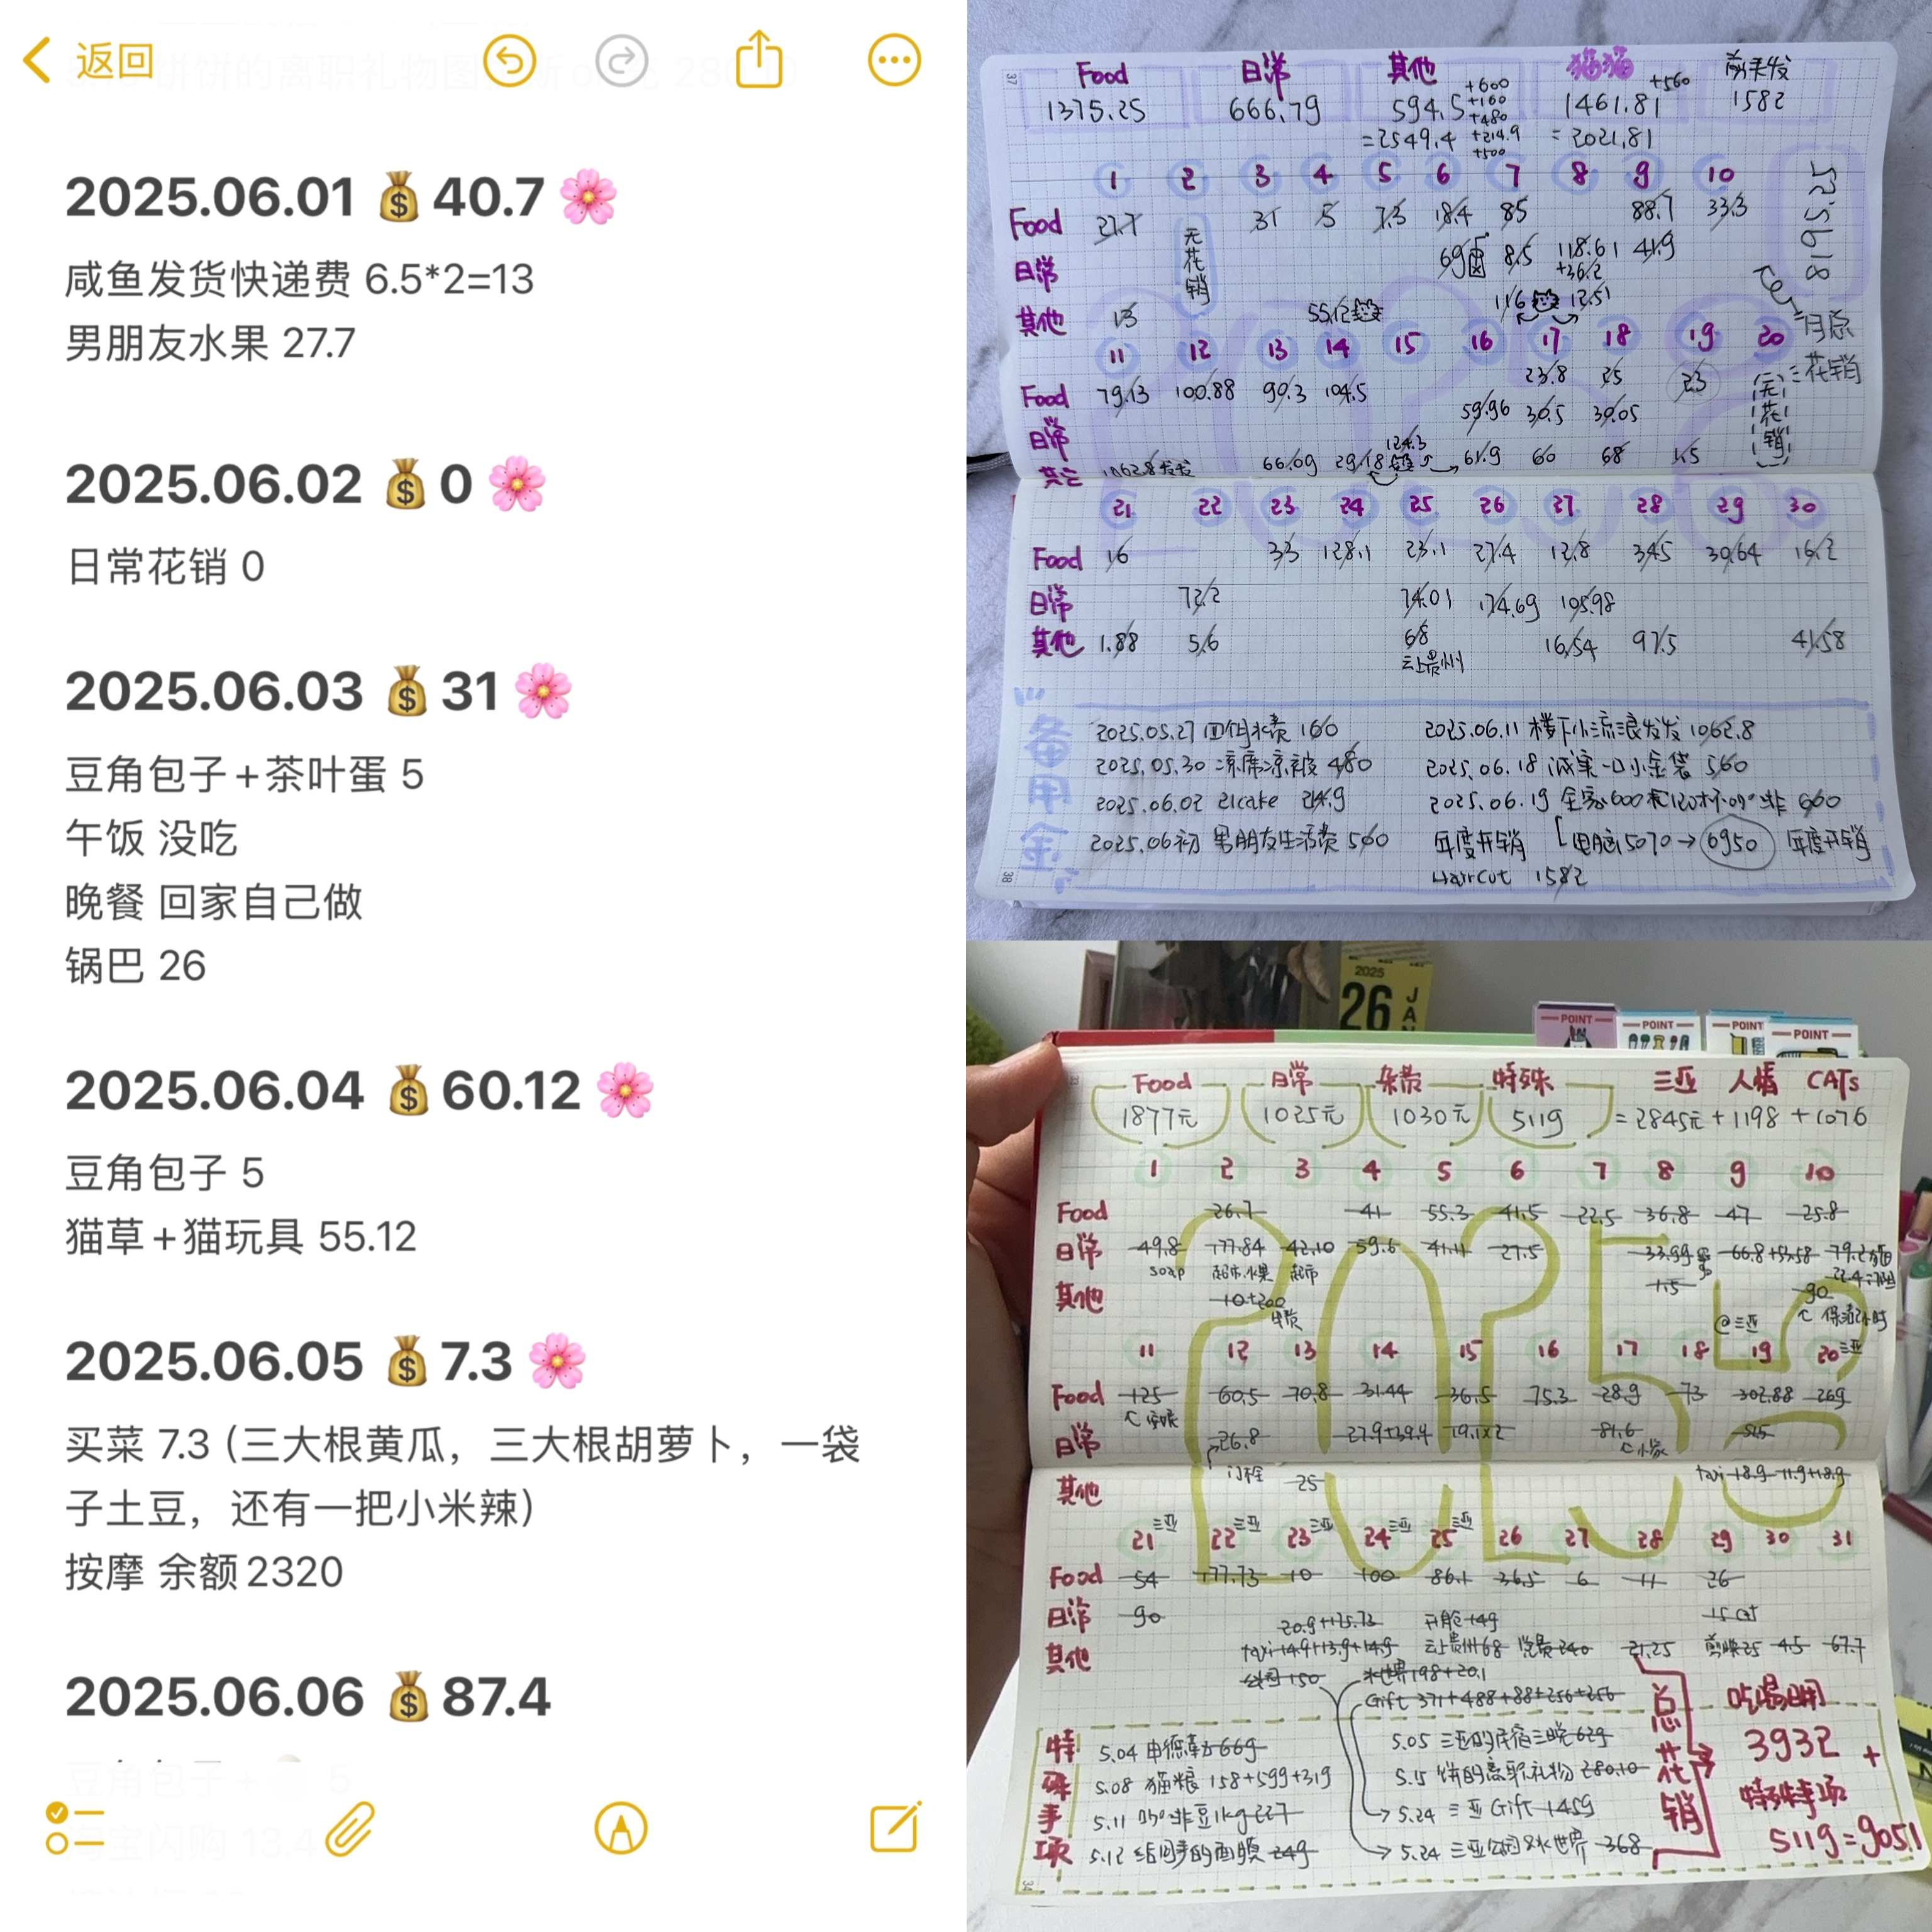 返回
2025.06.01 💰 40.7 🌸
咸鱼发货快递费 6.5*2=13
男朋友水果 27.7
2025.06.02 💰 0 🌸
日常花销 0
2025.06.03 💰 31 🌸
豆角包子+茶叶蛋 5
午饭 没吃
晚餐 回家自己做
锅巴 26
2025.06.04 💰 60.12 🌸
豆角包子 5
猫草+猫玩具 55.12
2025.06.05 💰 7.3 🌸
买菜 7.3 (三大根黄瓜，三大根胡萝卜，一袋
子土豆，还有一把小米辣)
按摩 余额2320
2025.06.06 💰 87.4
37
Food 日常 其他 猫猫
1375.25 666.79 594.5 1461.81 +560 1582
+600
+160
+480
+214.9
+500
=2549.4 =2021.81
1 2 3 4 5 6 7 8 9 10
Food 27.7 31 5 7.3 18.4 85 88.7 33.3
无花销
日常 69 8.5 118.61 41.9
+36.2
其他 13 55.12 116 12.51
5195.618
月总花销
11 12 13 14 15 16 17 18 19 20
Food 79.13 100.88 90.3 104.5 23.8 25 23
无花销
日常 59.96 30.5 30.05
124.3
其他 1062.8发发 66.09 29.18 61.9 60 68 1.5
21 22 23 24 25 26 27 28 29 30
Food 16 33 128.1 23.1 27.4 12.8 34.5 30.64 16.2
日常 72.2 74.01 174.69 105.98
其他 1.88 5.6 68 16.54 97.5 41.58
云上贵州
备用金
2025.05.27 160
2025.05.30 凉席凉被 480
2025.06.02 21cake 214.9
2025.06初 男朋友生活费 500
2025.06.11 楼下小流浪发发 1062.8
2025.06.18 诚实一口小金袋 560
2025.06.19 全家600 600
年度开销 [电脑5070→6950 年度开销
Haircut 1582
38
2025
26 JAN
POINT
POINT
POINT
POINT
Food 日常 杂费 特殊 三亚 人情 CATs
1877元 1025元 1030元 5119 =2845元+1198+1076
1 2 3 4 5 6 7 8 9 10
Food 26.7 41 55.3 41.5 22.5 36.8 47 25.8
日常 49.8 177.84 42.10 59.6 41.11 27.5 33.99 66.8+53.58 79.2
soap 超市水果 超市
1.5
其他 10+200 90
@三亚
11 12 13 14 15 16 17 18 19 20三亚
Food 125 60.5 70.8 31.44 36.5 75.3 28.9 73 302.88 269
日常 26.8 27.9+39.4 19.1x2 81.6
其他 25 taxi 18.9 11.9+18.9
21三亚 22三亚 23三亚 24三亚 25三亚 26 27 28 29 30 31
Food 54 177.73 10 100 86.1 36.5 6 11 26
日常 90 20.9+135.73 15 cat
其他 taxi 14.9+13.9+14.9 云上贵州68 240 21.25 4.5 67.7
水世界198+20.1
Gift 371+488+88+256+256
特殊事项
5.04 669
5.08 猫粮 158+599+319
5.11 咖啡豆1kg 227
5.12 给同事的面膜 249
5.05 三亚的民宿三晚 629
5.15 饼的离职礼物 280.10
5.24 三亚 Gift 1459
5.24 三亚公园&水世界 368
总花销
吃喝日用
3932 +
特殊事项
5119=9051